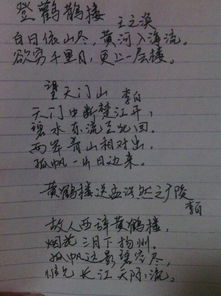 登鹳鹊楼
王之涣
白日依山尽，黄河入海流。
欲穷千里目，更上一层楼。
望天门山 李白
天门中断楚江开，
碧水东流至此回。
两岸青山相对出，
孤帆一片日边来。
黄鹤楼送孟浩然之广陵
李白
故人西辞黄鹤楼，
烟花三月下扬州。
孤帆远影碧空尽，
惟见长江天际流。